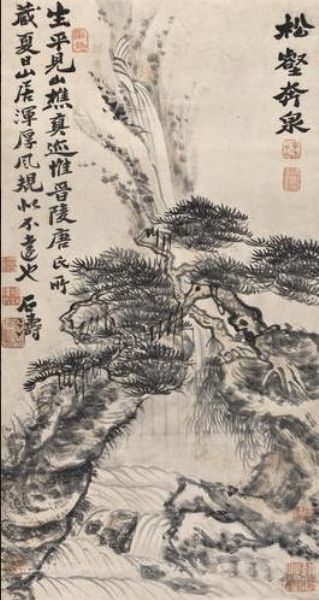 松壑奔泉
生平見山樵真迹惟晉陵唐氏所
藏夏日山居渾厚風規似不遠也 石濤